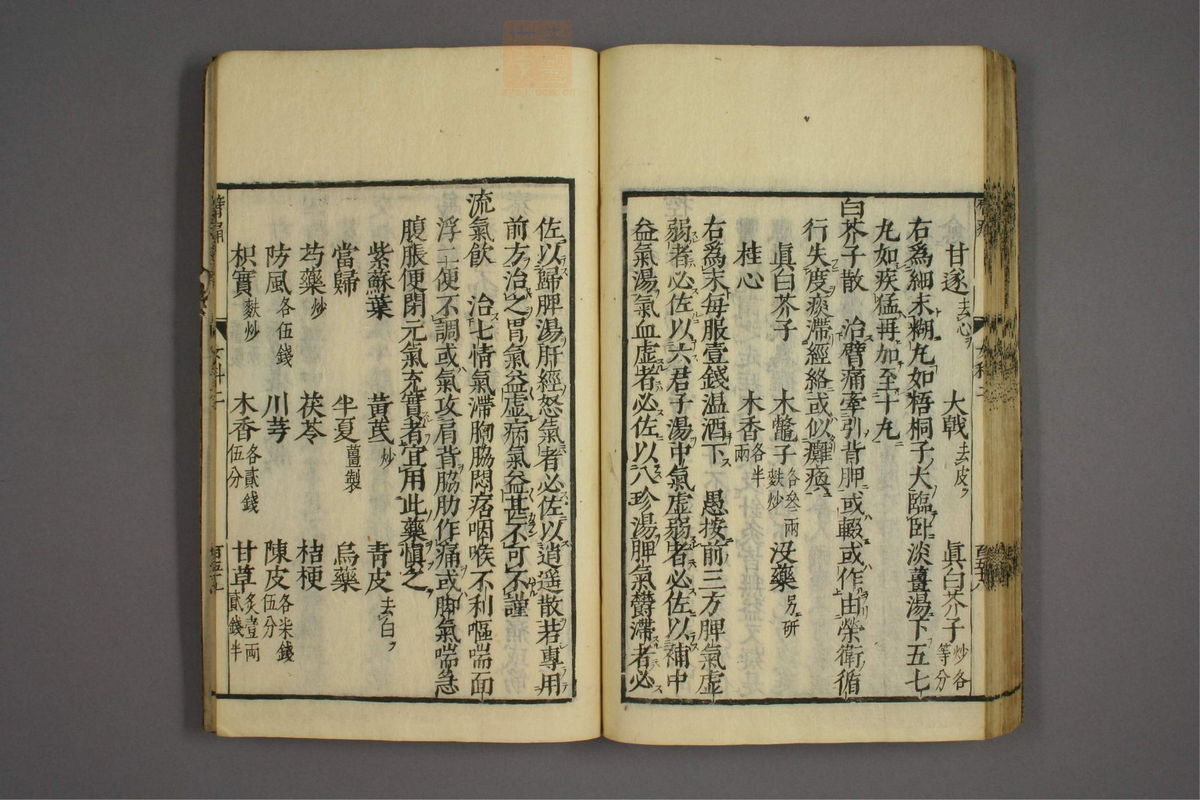 甘遂去心 大戟去皮 眞白芥子炒各等分
右爲細末糊丸如梧桐子大臨臥淡薑湯下五七
丸如疾猛再加至十丸
白芥子散 治臂痛牽引背胛或輟或作由榮衛循
行失度痰滯經絡或似癱瘓
眞白芥子 木鼈子各叄兩麩炒 沒藥另研
桂心 木香各半兩
右爲末毎服壹錢温酒下 愚按前三方脾氣虛
弱者必佐以六君子湯中氣虛弱者必佐以補中
益氣湯氣血虛者必佐以八珍湯脾氣欝滯者必
佐以歸脾湯肝經怒氣者必佐以逍遥散若專用
前方治之胃氣益虛病氣益甚不可不謹
流氣飲 治七情氣滯胸脇悶痞咽喉不利嘔喘面
浮二便不調或氣攻肩背脇肋作痛或脚氣喘急
腹脹便閉元氣充實者宜用此藥愼之
紫蘇葉 黃芪炒 青皮去白
當歸 半夏薑製 烏藥
芍藥炒 茯苓 桔梗
防風各伍錢 川芎 陳皮各柒錢伍分
枳實麩炒 木香各貳錢伍分 甘草炙壹兩貳錢半